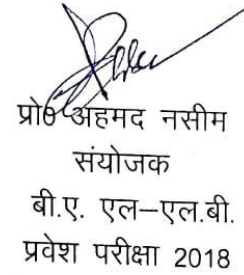 प्रो० अहमद नसीम
संयोजक
बी.ए. एल–एल.बी.
प्रवेश परीक्षा 2018